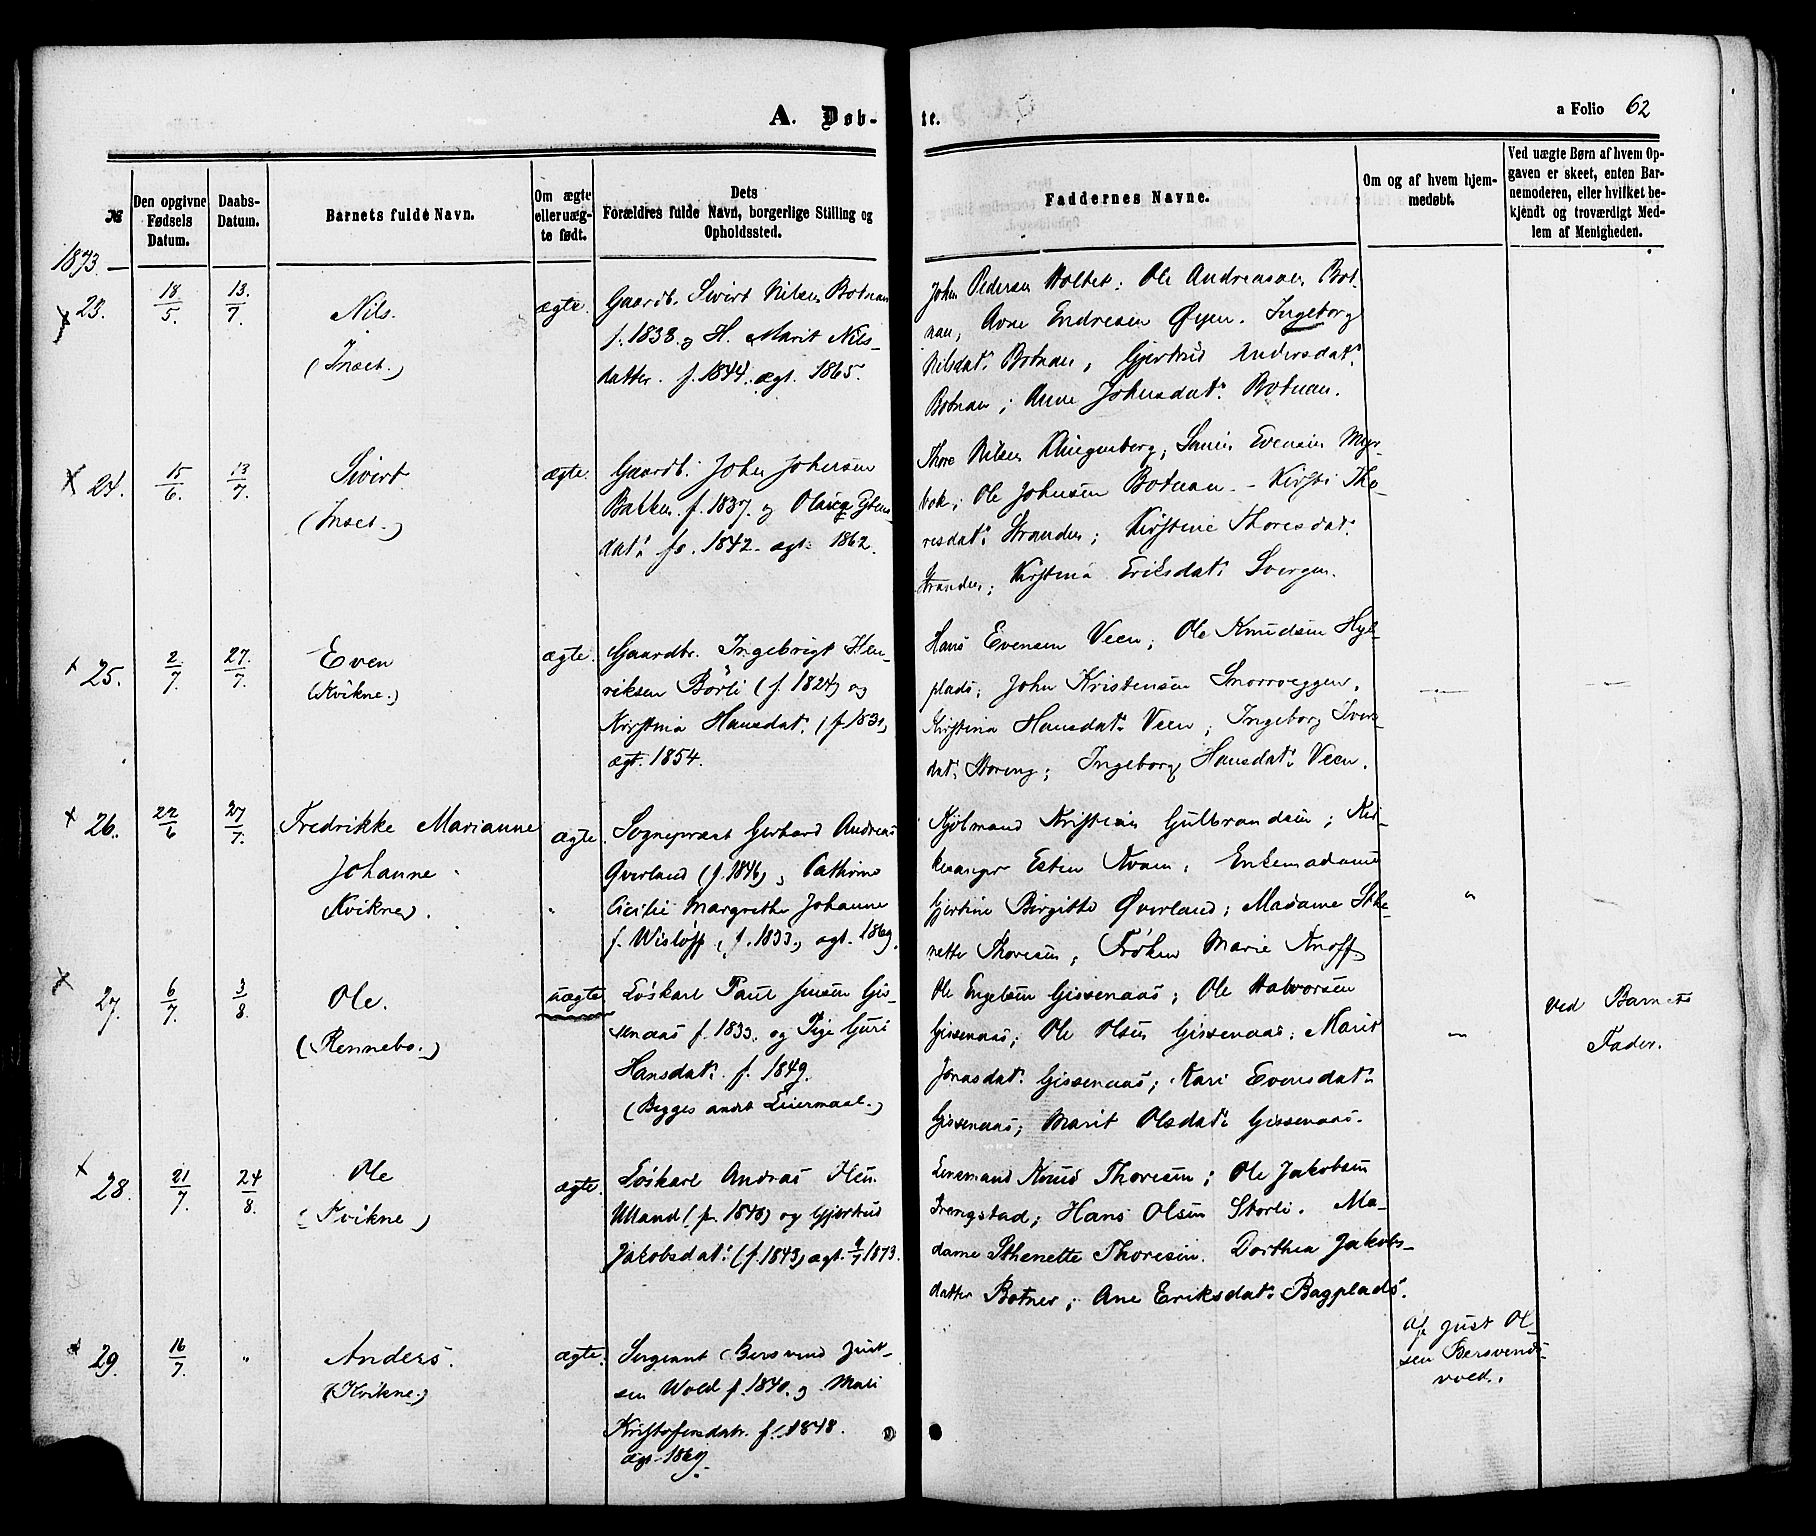 A. Døb-
te.
a Folio 62
№
Den opgivne Fødsels Datum.
Daabs-Datum.
Barnets fulde Navn.
Om ægte eller uæg-te født.
Dets
Forældres fulde Navn, borgerlige Stilling og
Opholdssted.
Faddernes Navne.
Om og af hvem hjem-
medøbt.
Ved uægte Børn af hvem Op-
gaven er skeet, enten Bar-
nemoderen, eller hvilket be-
kjendt og troværdigt Med-
lem af Menigheden.
1873.
23. 18/5. 13./7 Nils. ægte.
(Inset.)
Gaardb. Sivert Nilsen Botnan
f. 1838. og H. Marit Nils-
datter. f. 1844. ægt. 1865.
John Pedersen Holtet; Ole Andreasen Bot-
nan, Arne Endresen Øyen. Ingeborg
Nilsdat: Botnan, Gjertrud Andersdat:
Botnan; Anne Johnsdat: Botnan.
24. 15/6. 13/7. Sivert ægte.
(Inset.)
Gaardb. John Johnsen
Bakken. f. 1837. og
dat: fo. 1842. ægt: 1862.
Thore Nilsen Klingenberg, Evensen Myr-
bok; Ole Johnsen Botnan - Kirsti Tho-
resdat: Stranden; Kirstine Thoresdat:
Stranden; Kirstina Eriksdat:
25. 2/7. 27./7. Even ægte.
(Kvikne.)
Gaardbr. Ingebrigt Hen-
riksen Börli (f. 1824) og
Kirstina Hansdat: (f. 1831)
ægt. 1854.
Hans Evensen Veen; Ole Knudsen Hyl-
plads; John Kristensen Snorroeggen.
Kirstina Hansdat: Veen; Ingeborg Ivers-
dat: Storeng; Ingeborg Hansdat: Veen.
26. 22/6 27/7. Fredrikke Marianne ægte.
Johanne
(Kvikne).
Sognepræst Gerhard Andreas
Øverland (f. 1846), Cathrine
Cicilie Margrethe Johanne
f. Wisløff, (f. 1833), ægt. 1869.
Kjölmand Kristian Gulbrandsen; Kir-
kesanger Esten Kvam; Enkemadame
Gjertine Birgitte Øverland; Madame Sthe-
nette Thoresen, Frøken Marie Knoff
27. 6/7 3/8. Ole. uægte
(Rennebo.)
Löskarl Paul Jonsen Gis-
senaas f. 1833. og Pige Guri
Hansdat: f. 1849.
(Begges andet Leiermaal.)
Ole Engelsen Gissenaas; Ole Halvorsen
Gissenaas; Ole Olsen Gissenaas; Marit
Jonasdat: Gissenaas; Kari Evensdat:
Gissenaas; Marit Olsdat: Gissenaas.
Ved Barnets
Fader.
28. 21/7. 24/8. Ole ægte.
(Kvikne)
Löskarl Andras Olsen
Ulland (f. 1848) og Gjertrud
Jakobsdat: (f. 1843) ægt. 9/7 1873.
Lensmand Knud Thoresen; Ole Jakobsen
Frengstad; Hans Olsen Storli. Ma-
dame Sthenette Thoresen. Dorthea Jakobs-
datter Botner; Ane Eriksdat: Bagplads.
29. 16/7. " Anders. ægte.
(Kvikne.)
Sergeant Bersvend Just-
sen Wold f. 1840. og Mali
Kristofersdatr. f. 1848.
ægt. 1869.
Af Just Ol-
sen Bersvends-
vold.